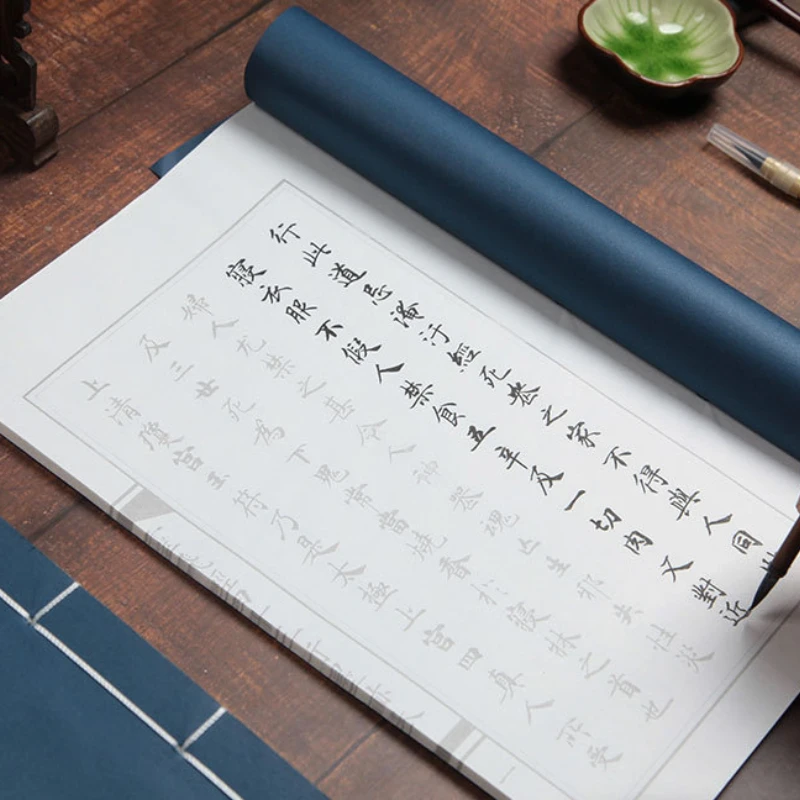 行此道忌淹汙經死喪之家不得與人同
寢衣服不假人禁食五辛及一切肉又對近
婦人尤禁之甚令人神喪魂亡生邪失性災
及三世死為下鬼常當燒香於寢牀之首也
上清瓊宮玉符乃是太極上宮四真人所受